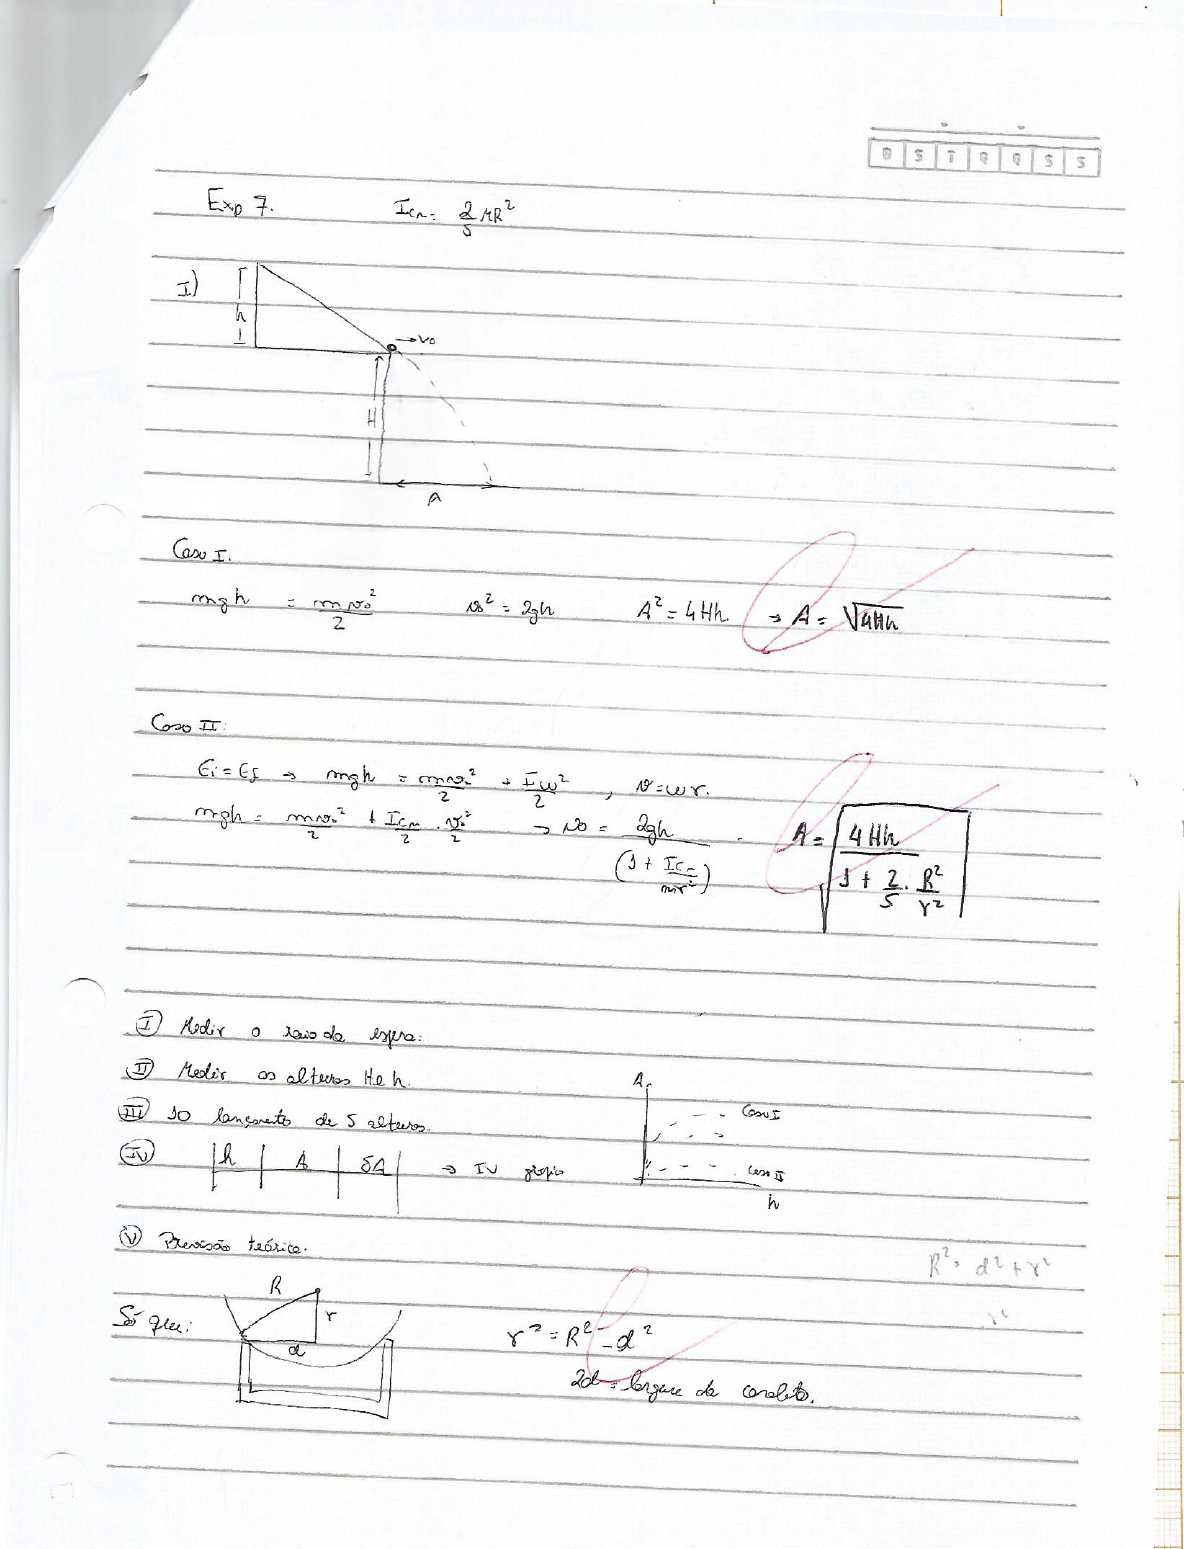 D S T Q Q S S
Exp 7. Icm = 2/5 MR²
I)
h
→v₀
H
A
Caso I.
mgh = mv₀²/2 v² = 2gh A² = 4Hh → A = √4Hh
Caso II:
Ei = Ef → mgh = mv₀²/2 + Iω²/2 , v = ωr.
mgh = mv₀²/2 + Icm/2 . v₀²/2 → v₀ = 2gh/(1 + Icm/mr²) . A = √(4Hh/(1 + 2/5 . R²/r²))
I Medir o raio da esfera:
II Medir as alturas H e h.
III 10 lançamento de 5 alturas.
IV h | A | δA → IV gráfico
A
Caso I
Caso II
h
V Previsão teórica.
R² = d² + r²
r²
Só que:
R
r
d
r² = R² - d²
2d = largura da canaleta.